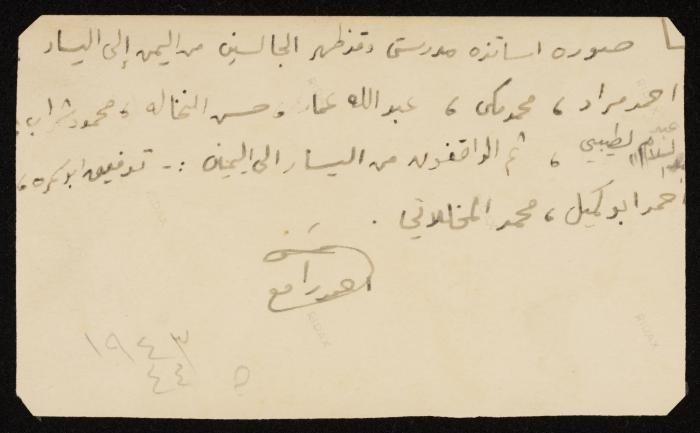 صوره اساتذه مدرستي وقد ظهر الجالسين من اليمن إلى اليسار
احمد مراد ، محمد مكي ، عبد الله عمار وحسن النخاله ، محمود شراب
عبد السلام لطبيبي ، ثم الواقفون من اليسار الى اليمين :- توفيق ابو كره ،
احمد ابو كميل ، محمد المخللاتي .
احمد رامع
١٩٤٣
٤٤
RIDAX
RIDAX